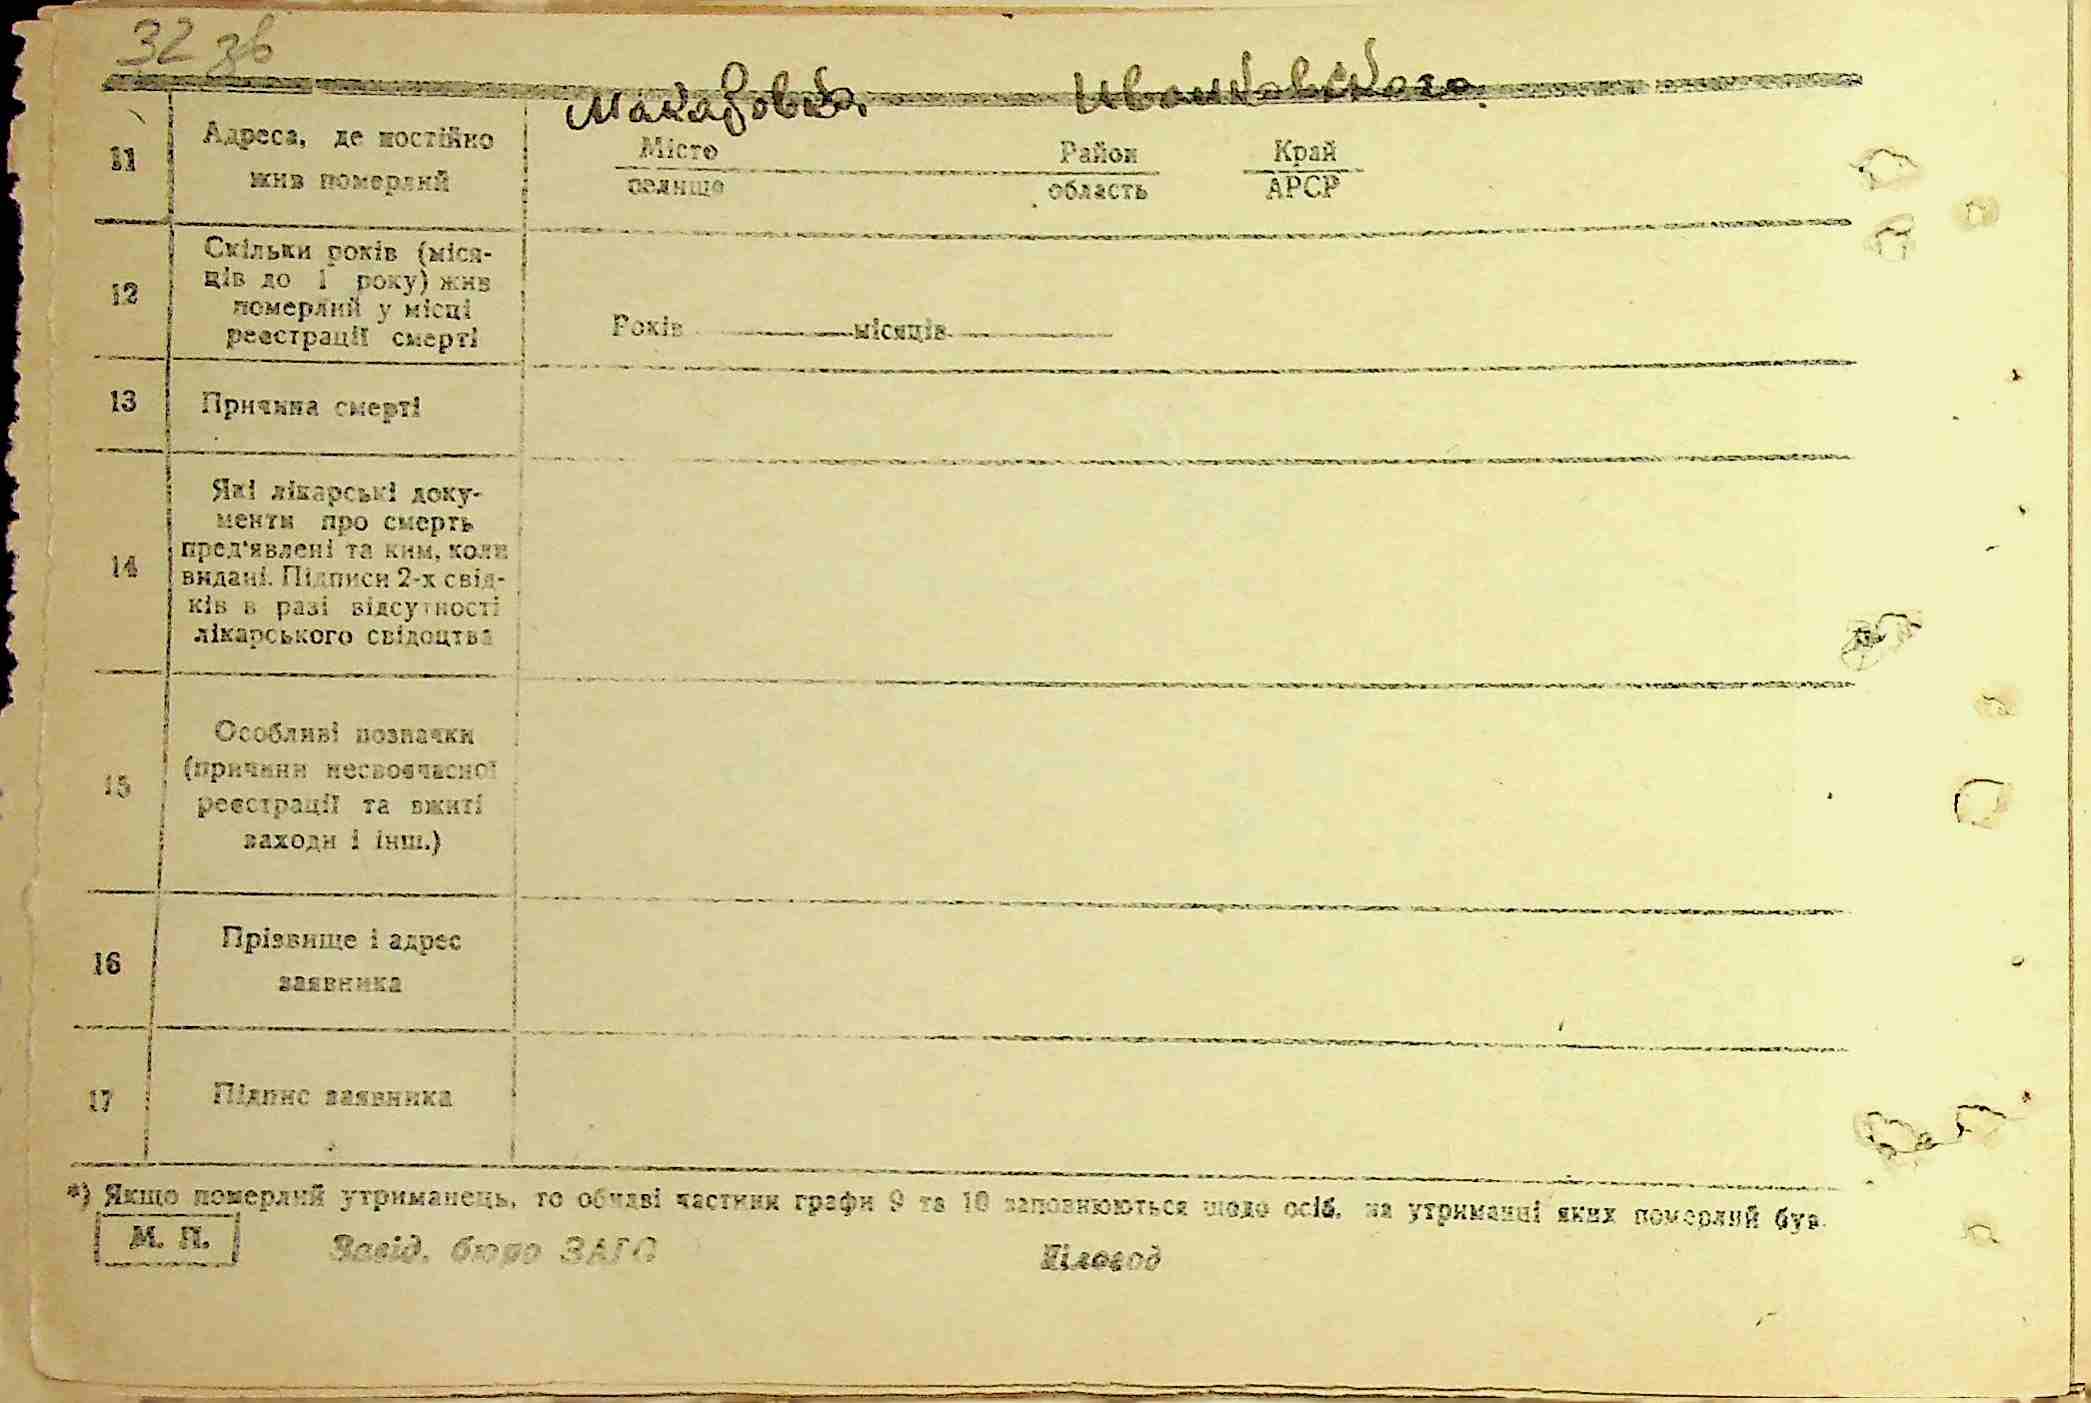 32 зв
Макаровка Иванковского
11 Адреса, де постійно жив померлий
Місто Район Край
селище область АРСР
12 Скільки років (міся-
ців до 1 року) жив
померлий у місці
реєстрації смерті
Років місяців
13 Причина смерті
14 Які лікарські доку-
менти про смерть
пред'явлені та ким, коли
видані. Підписи 2-х свід-
ків в разі відсутності
лікарського свідоцтва
15 Особливі позначки
(причини несвоєчасної
реєстрації та вжиті
заходи і інш.)
16 Прізвище і адрес
заявника
17 Підпис заявника
*) Якщо померлий утриманець, то обидві частини графи 9 та 10 заповнюються щодо осіб, на утриманні яких померлий був.
М. П. Завід. бюро ЗАГС Діловод